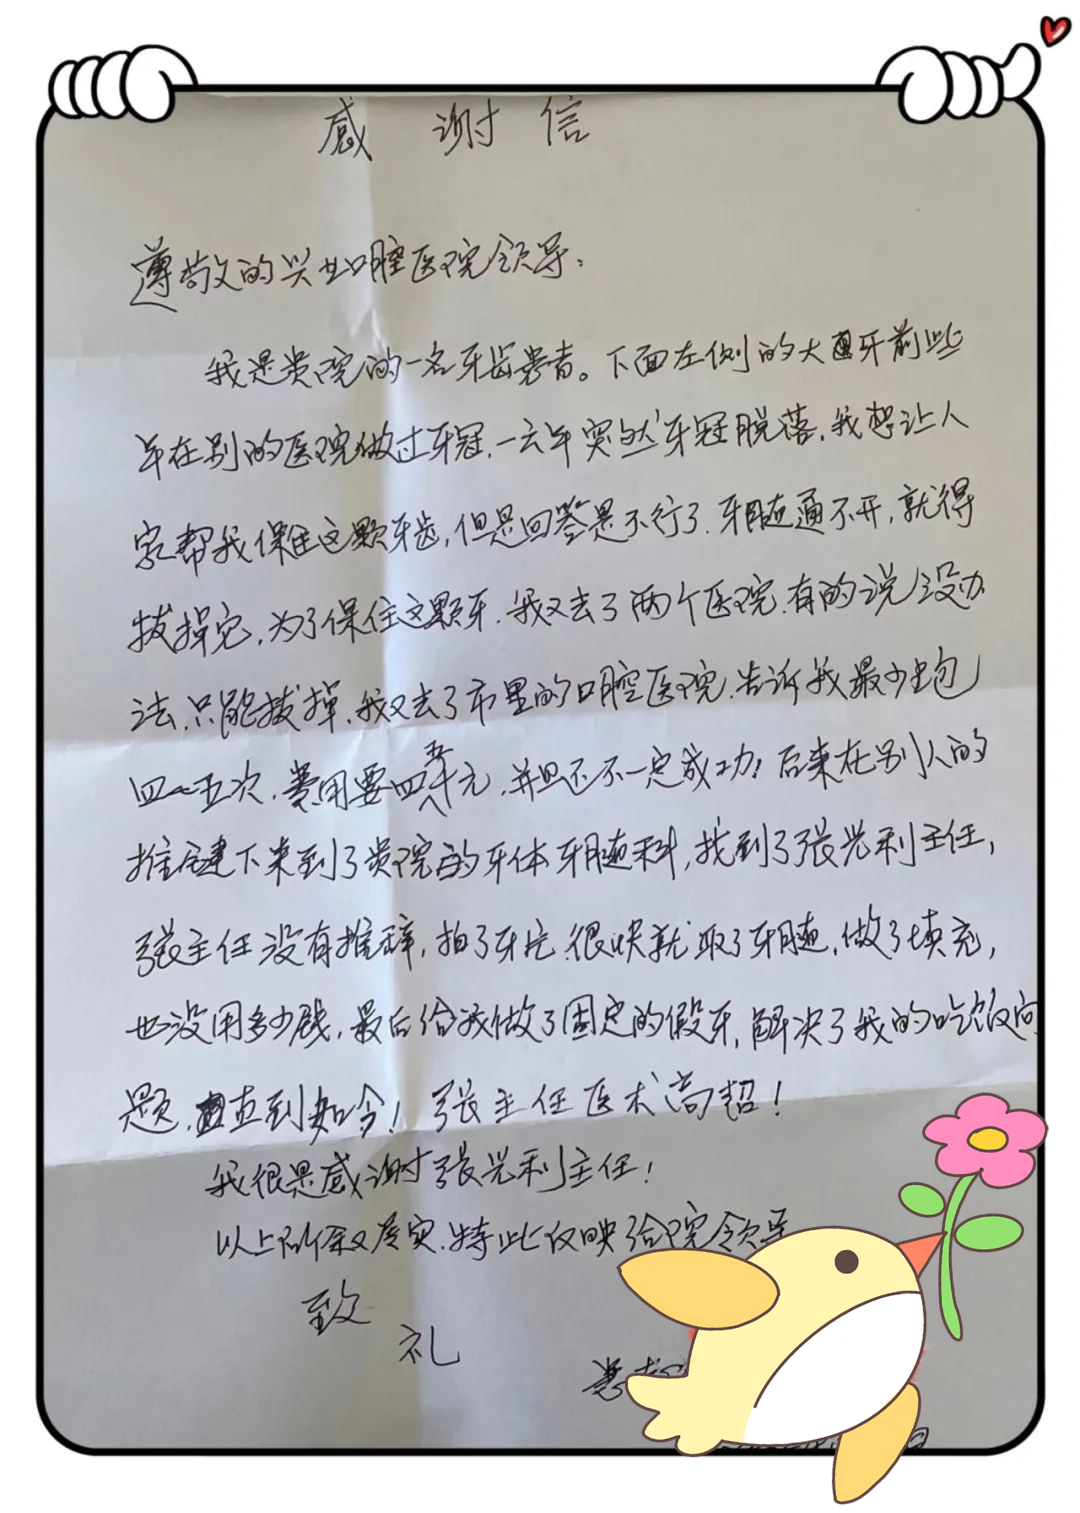 感谢信
尊敬的兴业口腔医院领导：
我是贵院的一名牙齿患者。下面左侧的大牙前些
年在别的医院做过牙冠，去年突然牙冠脱落，我想让人
家帮我保住这颗牙齿，但是回答是不行了，牙髓通不开，就得
拔掉它，为了保住这颗牙，我又去了两个医院，有的说没办
法，只能拔掉，我又去了市里的口腔医院，告诉我最少跑
四~五次，费用要四五千元，并且还不一定成功！后来在别人的
推荐下来到了贵院的牙体牙髓科，找到了张兴利主任，
张主任没有推辞，拍了牙片，很快就取了牙髓，做了填充，
也没用多少钱，最后给我做了固定的假牙，解决了我的吃饭问
题，直到如今！张主任医术高超！
我很是感谢张兴利主任！
以上所叙属实，特此反映给院领导
致
礼
患